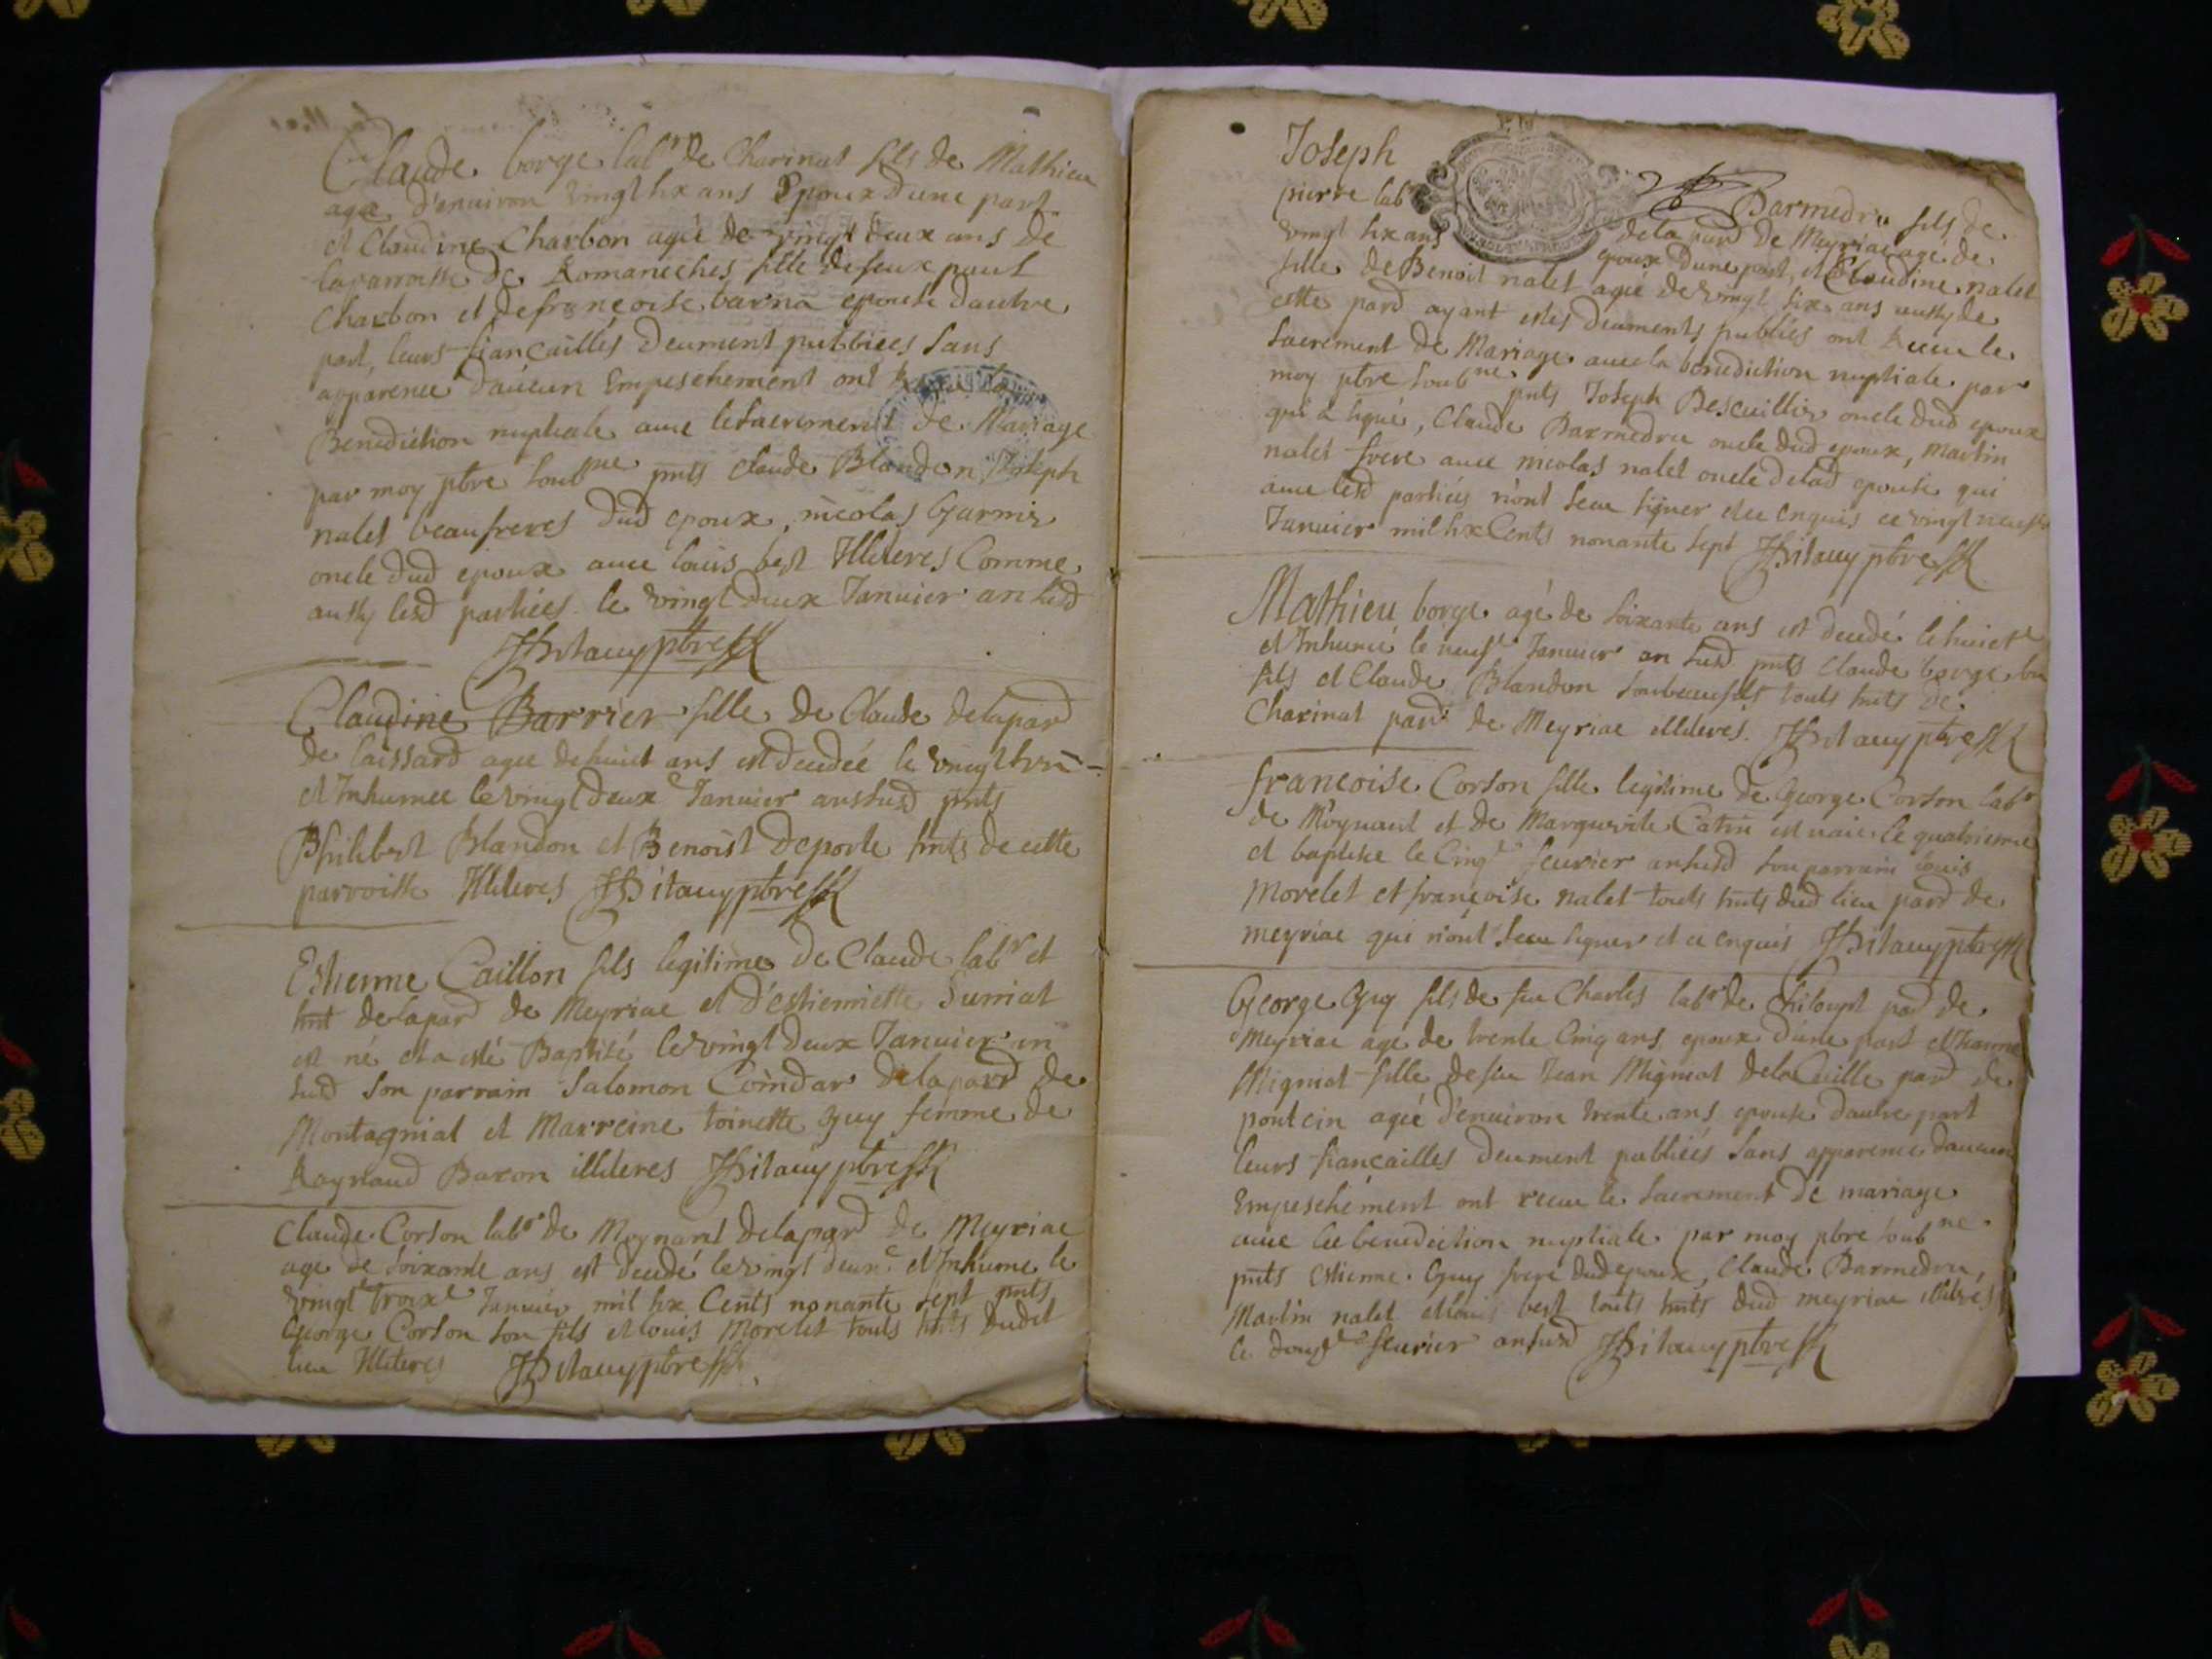 Claude borge lab^r de Charinat fils de Mathieu
agé d'enuiron vingt six ans Epoux dune part
et Claudine Charbon agée de vingt deux ans de
laparroisse de Romaneches fille de feux paul
Charbon et defrançoise barna epouse dautre
part, leurs fiancailles deument publiees sans
apparence daucun Empeschement ont
Benediction nuptiale auec le sacrement de Mariage
par moy pbre soub^ne pnts Claude Blandon Joseph
nalet beaufreres dud epoux, nicolas Garnier
oncle dud epoux auec louis best Illiteres Comme
aussy lesd partiées le vingt deux Januier an susd
pbre
Claudine Barrier fille de Claude delapard
de laissard agee dehuict ans est decedée le vingt vn
et Inhumee le vingt deux^e Januier an susd pnts
Philibert Blandon et Benoist deporte hnts de cette
parroisse Illiteres pbre
Estienne Caillon fils legitime de Claude lab^r et
hnt delapard de Meyriac et d'estiennette Surniat
est né et a esté Baptisé le vingt deux Januier an
susd son parrain Salomon Coindar delapard de
Montagniat et Marreine toinette Guy femme de
Raynaud Baron illiteres pbre
Claude Corson lab^r de Moynant delapard de Meyriac
age de soixante ans est decedé le vingt deux^e et Inhume le
vingt troix^e Januier mil six Cents nonante sept pnts
George Corson son fils et louis Morelet touts hnts dudit
lieu Illiteres pbre
Joseph Barmedru fils de
pierre lab^r delapard de Meyriac agé de
vingt six ans epoux dune part, et Claudine nalet
fille de Benoit nalet agée de vingt six ans aussy de
cette pard ayant estes deuments publiés ont receu le
sacrement de Mariage auec la benediction nuptiale par
moy pbre soub^ne pnts Joseph Bescuillier oncle dud epoux
qui a signé, Claude Barmedru oncle dud epoux, Martin
nalet frere auec nicolas nalet oncle delad epouse qui
auec lesd partiées n'ont sceu signer de ce enquis ce vingt neuf
Januier mil six Cents nonante sept pbre
Mathieu borge agé de soixante ans est decedé le huict^e
et Inhumé le neuf^e Januier an susd pnts claude borge son
fils et Claude Blandon son beaufils touts hnts de
Charinat pard de Meyriac illiteres. pbre
francoise Corson fille legitime de George Corson lab^r
de Moynant et de Marguerite Catin est naie le quatrieme
et baptisee le Cinq^e feurier an susd son parrain louis
Morelet et françoise nalet touts hnts dud lieu pard de
meyriac qui n'ont sceu signer de ce enquis pbre
George Guy fils de feu Charles lab^r de Chiloupt pard de
Meyriac agé de trente Cinq ans epoux d'une part et Jeanne
Migniot fille de feu Jean Migniot dela Cueille pard de
pontcin agée d'enuiron trente ans epouse dautre part
leurs fiancailles deument publiées sans apparence daucun
Empeschement ont receu le sacrement de mariage
auec la benediction nuptiale par moy pbre soub^ne
pnts estienne Guy frere dud epoux, Claude Barmedru,
Martin nalet et louis best touts hnts dud meyriac illiteres
Le feurier an susd pbre